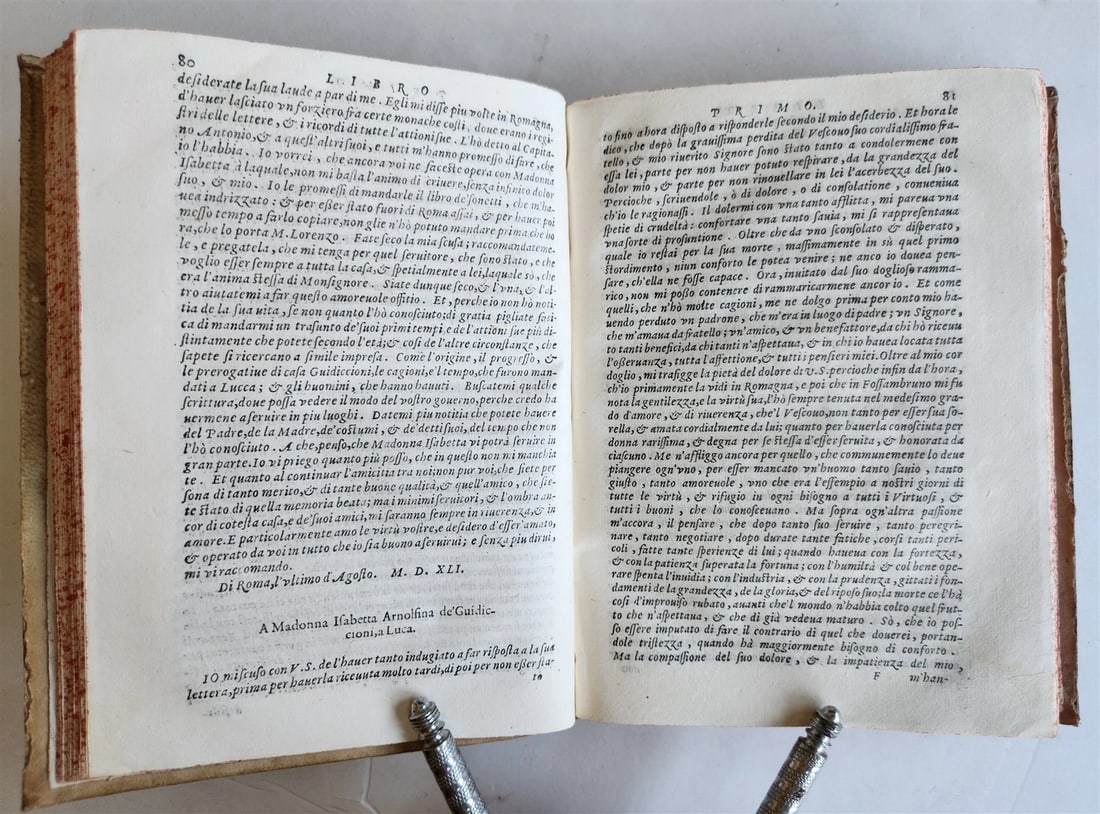 80
LIBRO
desiderate la sua laude a par di me. Egli mi disse piu volte in Romagna,
d'hauer lasciato vn forziero fra certe monache costi, doue erano i regi-
stri delle lettere, & i ricordi di tutte l'attioni sue. L'hò detto al Capita-
no Antonio, & a quest'altri suoi, e tutti m'hanno promesso di fare, che
io l'habbia. Io vorrei, che ancora voi ne faceste opera con Madonna
Isabetta à laquale, non mi basta l'animo di scriuere, senza infinito dolor
suo, & mio. Io le promessi di mandarle il libro de' sonetti, che m'ha-
uea indrizzato: & per esser stato fuori di Roma assai, & per hauer poi
messo tempo a farlo copiare, non glie n'hò potuto mandare prima, che ho
ra, che lo porta M. Lorenzo. Fate seco la mia scusa; raccomandateme-
le, e pregatela, che mi tenga per quel seruitore, che sono stato, e che
voglio esser sempre a tutta la casa, & spetialmente a lei, laquale sò, che
era l'anima stessa di Monsignore. Siate dunque seco, & l'vna, & l'al-
tro aiutatemi a far questo amoreuole offitio. Et, perche io non hò noti-
tia de la sua vita, se non quanto l'hò conosciuto; di gratia pigliate fati-
ca di mandarmi vn trasunto de' suoi primi tempi, e de l'attioni sue più di-
stintamente che potete secondo l'età; & cosi de l'altre circonstanze, che
sapete si ricercano a simile impresa. Come l'origine, il progresso, &
le prerogatiue di casa Guidiccioni, le cagioni, e'l tempo, che furono man-
dati a Lucca; & gli huomini, che hanno hauuti. Buscatemi qualche
scrittura, doue possa vedere il modo del vostro gouerno, perche credo ha
uermene a seruire in piu luoghi. Datemi piu notitia che potete hauere
del Padre, de la Madre, de' costumi, & de' detti suoi, del tempo che non
l'hò conosciuto. A che, penso, che Madonna Isabetta vi potrà seruire in
gran parte. Io vi priego quanto più posso, che in questo non mi manchia
te. Et quanto al continuar l'amicitia tra noi; non pur voi, che siete per
sona di tanto merito, & di tante buone qualità, & quell'amico, che sie-
te stato di quella memoria beata; ma i minimi seruitori, & l'ombra an-
cor di cotesta casa, e de' suoi amici, mi saranno sempre in riuerenza, & in
amore. E particolarmente amo le virtù vostre, e desidero d'esser' amato,
& operato da voi in tutto che io sia buono a seruirui; e senza piu dirui,
mi vi raccomando.
Di Roma, l'vltimo d'Agosto. M. D. XLI.
A Madonna Isabetta Arnolfina de' Guidic-
cioni, a Luca.
IO mi scuso con V. S. de l'hauer tanto indugiato a far risposta a la sua
lettera, prima per hauerla riceuuta molto tardi, di poi per non esser sta-
to
81
PRIMO.
to fino a hora disposto a risponderle secondo il mio desiderio. Et hora le
dico, che dopò la grauissima perdita del Vescouo suo cordialissimo fra-
tello, & mio riuerito Signore sono stato tanto a condolermene con
essa lei, parte per non hauer potuto respirare, da la grandezza del
dolor mio, & parte per non rinouellare in lei l'acerbezza del suo.
Percioche, scriuendole, ò di dolore, o di consolatione, conueniua
ch'io le ragionassi. Il dolermi con vna tanto afflitta, mi pareua vna
spetie di crudeltà: confortare vna tanto sauia, mi si rappresentaua
vna sorte di prosuntione. Oltre che da vno sconsolato & disperato,
quale io restai per la sua morte, massimamente in sù quel primo
stordimento, niun conforto le potea venire; ne anco io douea pen-
sare, ch'ella ne fosse capace. Ora, inuitato dal suo doglioso ramma-
rico, non mi posso contenere di rammaricarmene ancor io. Et come
quelli, che n'hò molte cagioni, me ne dolgo prima per conto mio ha-
uendo perduto vn padrone, che m'era in luogo di padre; vn Signore,
che m'amaua da fratello; vn'amico, & vn benefattore, da chi hò riceuu
to tanti benefici, da chi tanti n'aspettaua, & in chi io hauea locata tutta
l'osseruanza, tutta l'affettione, & tutti i pensieri miei. Oltre al mio cor
doglio, mi trafigge la pietà del dolore di V. S. percioche infin da l'hora,
ch'io primamente la vidi in Romagna, e poi che in Fossambruno mi fu
nota la gentilezza, e la virtù sua, l'hò sempre tenuta nel medesimo gra-
do d'amore, & di riuerenza, che'l Vescouo, non tanto per esser sua so-
rella, & amata cordialmente da lui; quanto per hauerla conosciuta per
donna rarissima, & degna per se stessa d'esser seruita, & honorata da
ciascuno. Me n'affliggo ancora per quello, che communemente lo deue
piangere ogn'vno, per esser mancato vn'huomo tanto sauio, tanto
giusto, tanto amoreuole, vno che era l'essempio a nostri giorni di
tutte le virtù, & rifugio in ogni bisogno a tutti i Virtuosi, &
tutti i buoni, che lo conosceuano. Ma sopra ogn'altra passione
m'accora, il pensare, che dopo tanto suo seruire, tanto peregri-
nare, tanto negotiare, dopo durate tante fatiche, corsi tanti peri-
coli, fatte tante sperienze di lui; quando haueua con la fortezza,
& con la patienza superata la fortuna; con l'humiltà & col bene ope-
rare spenta l'inuidia; con l'industria, & con la prudenza, gittati i fon-
damenti de la grandezza, de la gloria, & del riposo suo; la morte ce l'hà
così d'improuiso rubato, auanti che'l mondo n'habbia colto quel frut-
to che n'aspettaua, & che di già vedeua maturo. Sò, che io pos-
so essere imputato di fare il contrario di quel che douerei, portan-
dole tristezza, quando hà maggiormente bisogno di conforto.
Ma la compassione del suo dolore, & la impatienza del mio,
F m'han-